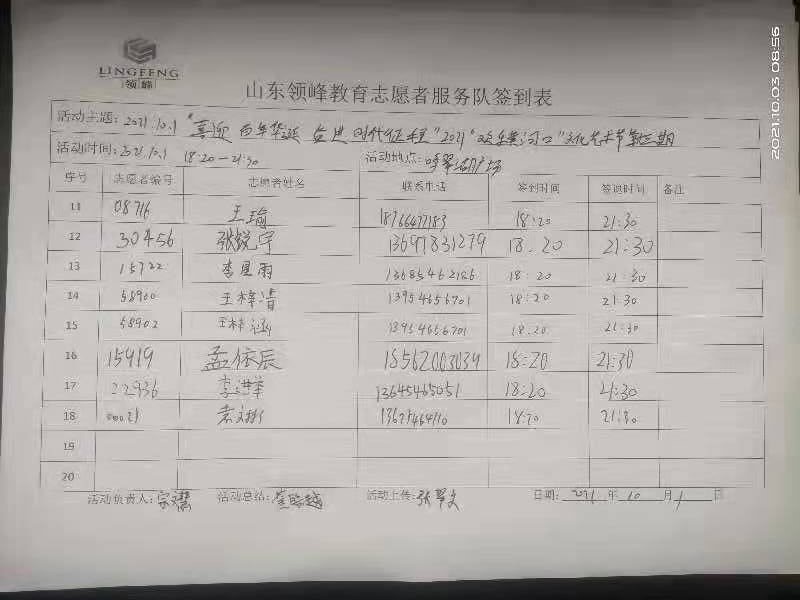 LINGFENG
领峰
山东领峰教育志愿者服务队签到表
活动主题: 2021.10.1 "喜迎百年华诞 奋进时代征程"2021"欢乐黄河口"文化艺术节第三期
活动时间: 2021.10.1 18:20—21:30 活动地点:
序号 志愿者编号 志愿者姓名 联系电话 签到时间 签退时间 备注
11 08716 王瑜 18766477183 18:20 21:30
12 30456 张锐宇 13697831279 18.20 21:30
13 15722 李星雨 13685462186 18:20 21:30
14 58900 王梓清 13954656701 18:20 21:30
15 58902 王梓涵 13954656701 18.20 21:30
16 15419 孟依辰 18562003039 18:20 21:30
17 22936 李进华 13645465051 18:20 21:30
18 00021 袁文彬 18:20 21:30
19
20
活动负责人: 活动总结: 活动上传: 张翠文 日期: 2021 年 10 月 1 日
2021.10.03 08:56